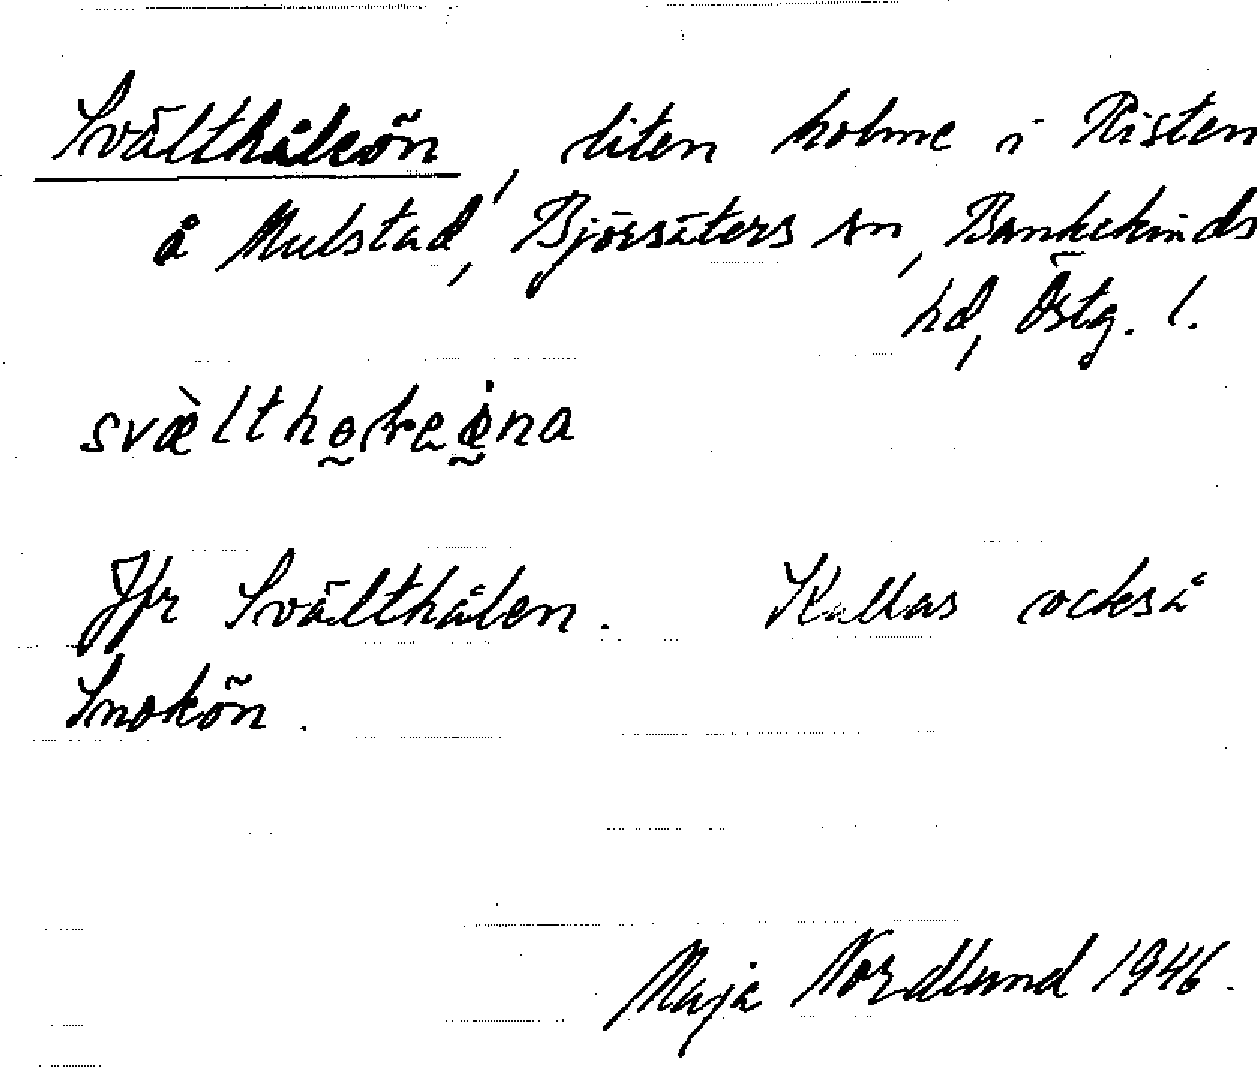 Svälthåleön, liten holme i Risten
å Mulstad, Björsäters sn, Bankekinds
hd, Östg. l.
Jfr Svälthålen. Kallas också
Snokön.
Maja Nordlund 1946.